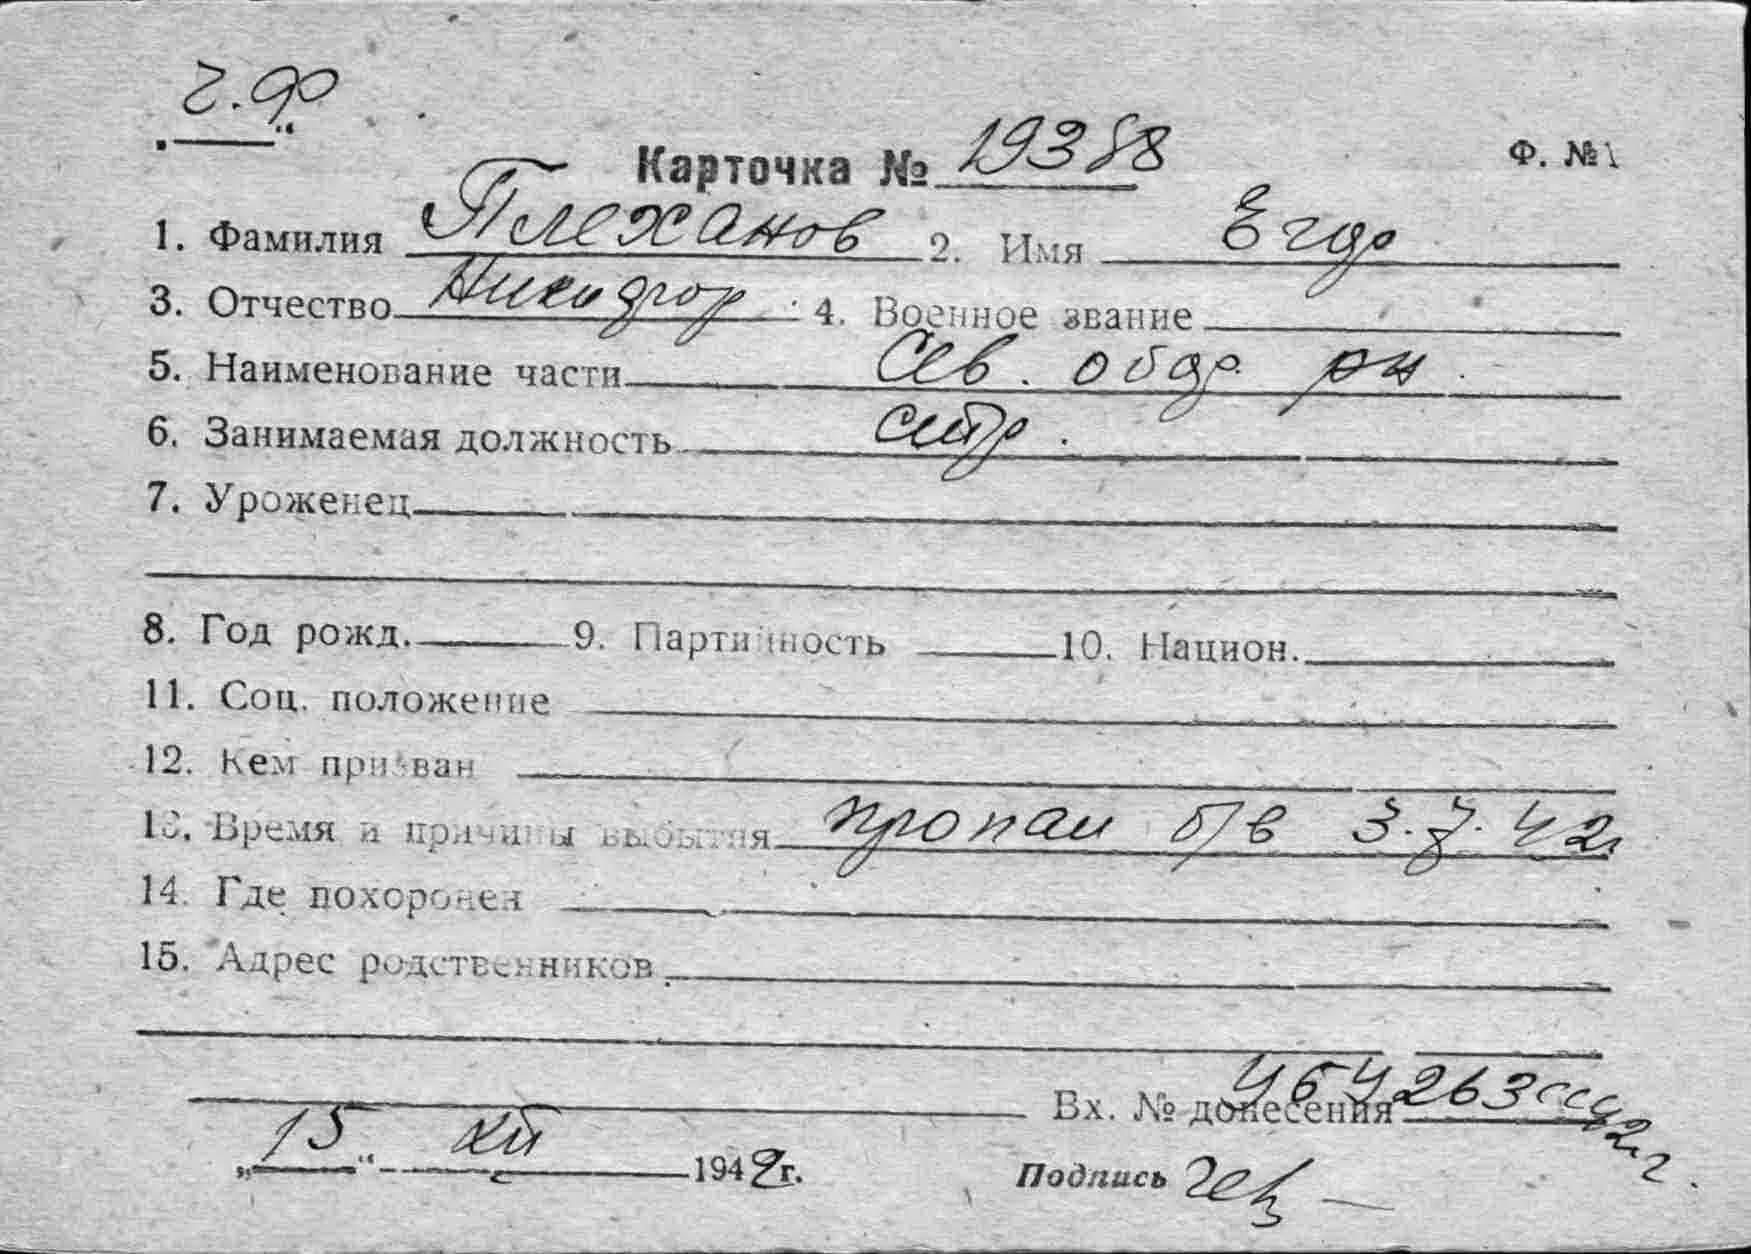 ч.ф
„ “
Карточка № 19388 Ф. №1
1. Фамилия Плеханов 2. Имя Егор
3. Отчество Никифор 4. Военное звание
5. Наименование части Сев. обор. рн.
6. Занимаемая должность стр.
7. Уроженец
8. Год рожд. 9. Партийность 10. Национ.
11. Соц. положение
12. Кем призван
13. Время и причины выбытия пропал б/в 3.7.42г
14. Где похоронен
15. Адрес родственников
Вх. № донесения
„15“ XII 1942г.
Подпись